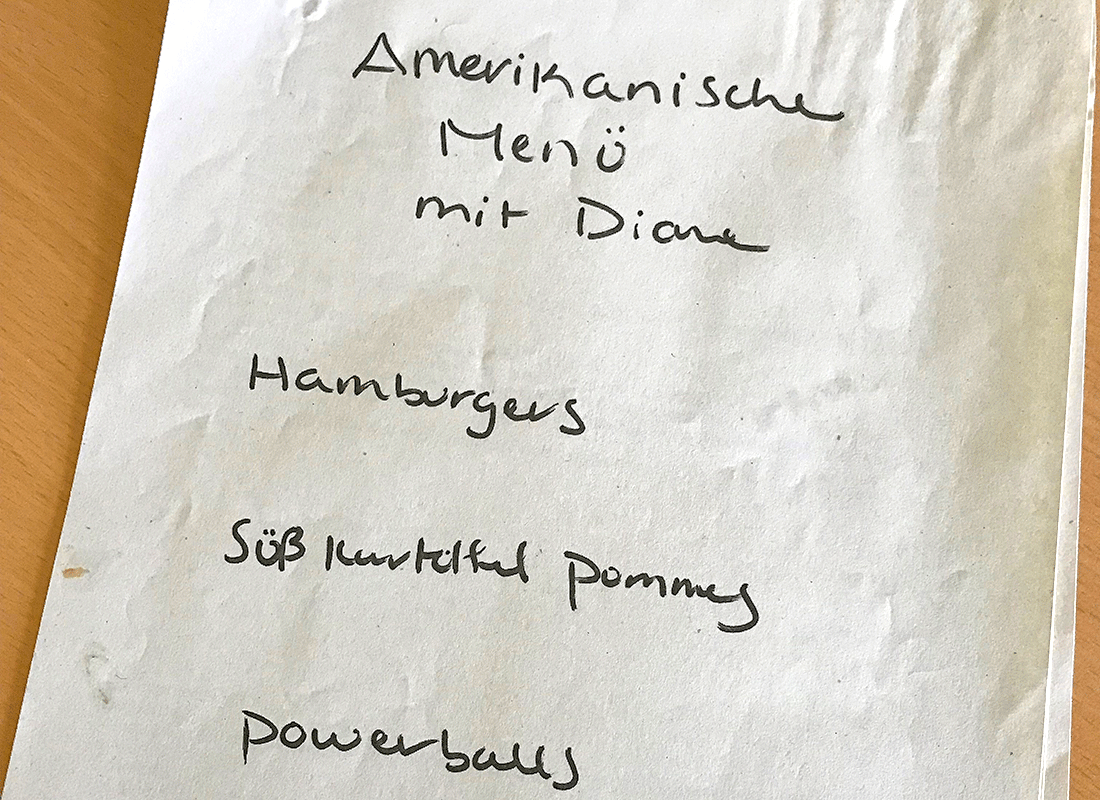 Amerikanische
Menü
mit Diane
Hamburgers
Süß kartoffel pommes
powerballs